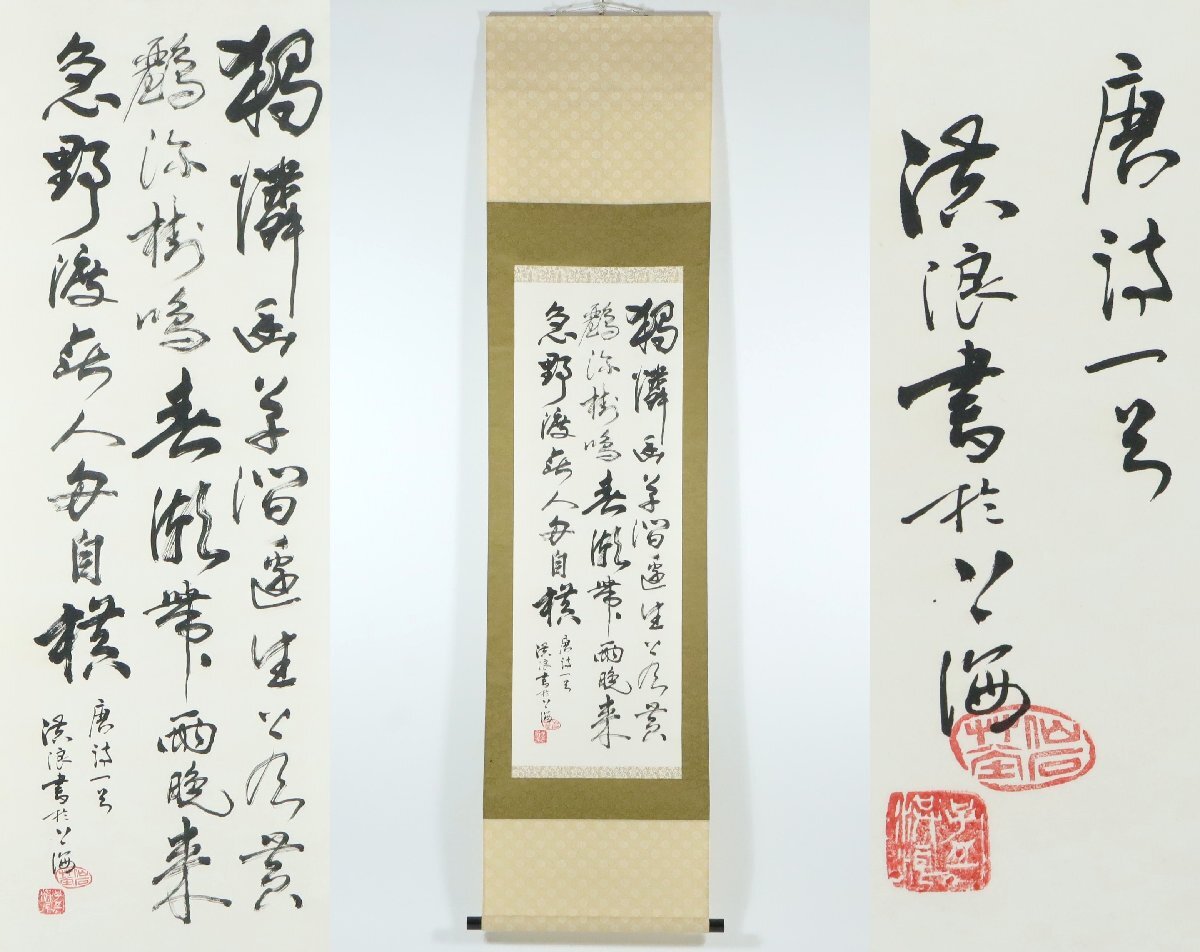 獨憐幽草澗邊生上有黄
鸝深樹鳴春潮帶雨晚來
急野渡無人舟自横
唐詩一首
洪浪書於上海
獨憐幽草澗邊生上有黄
鸝深樹鳴春潮帶雨晚來
急野渡無人舟自横
唐詩一首
洪浪書於上海
唐詩一首
洪浪書於上海